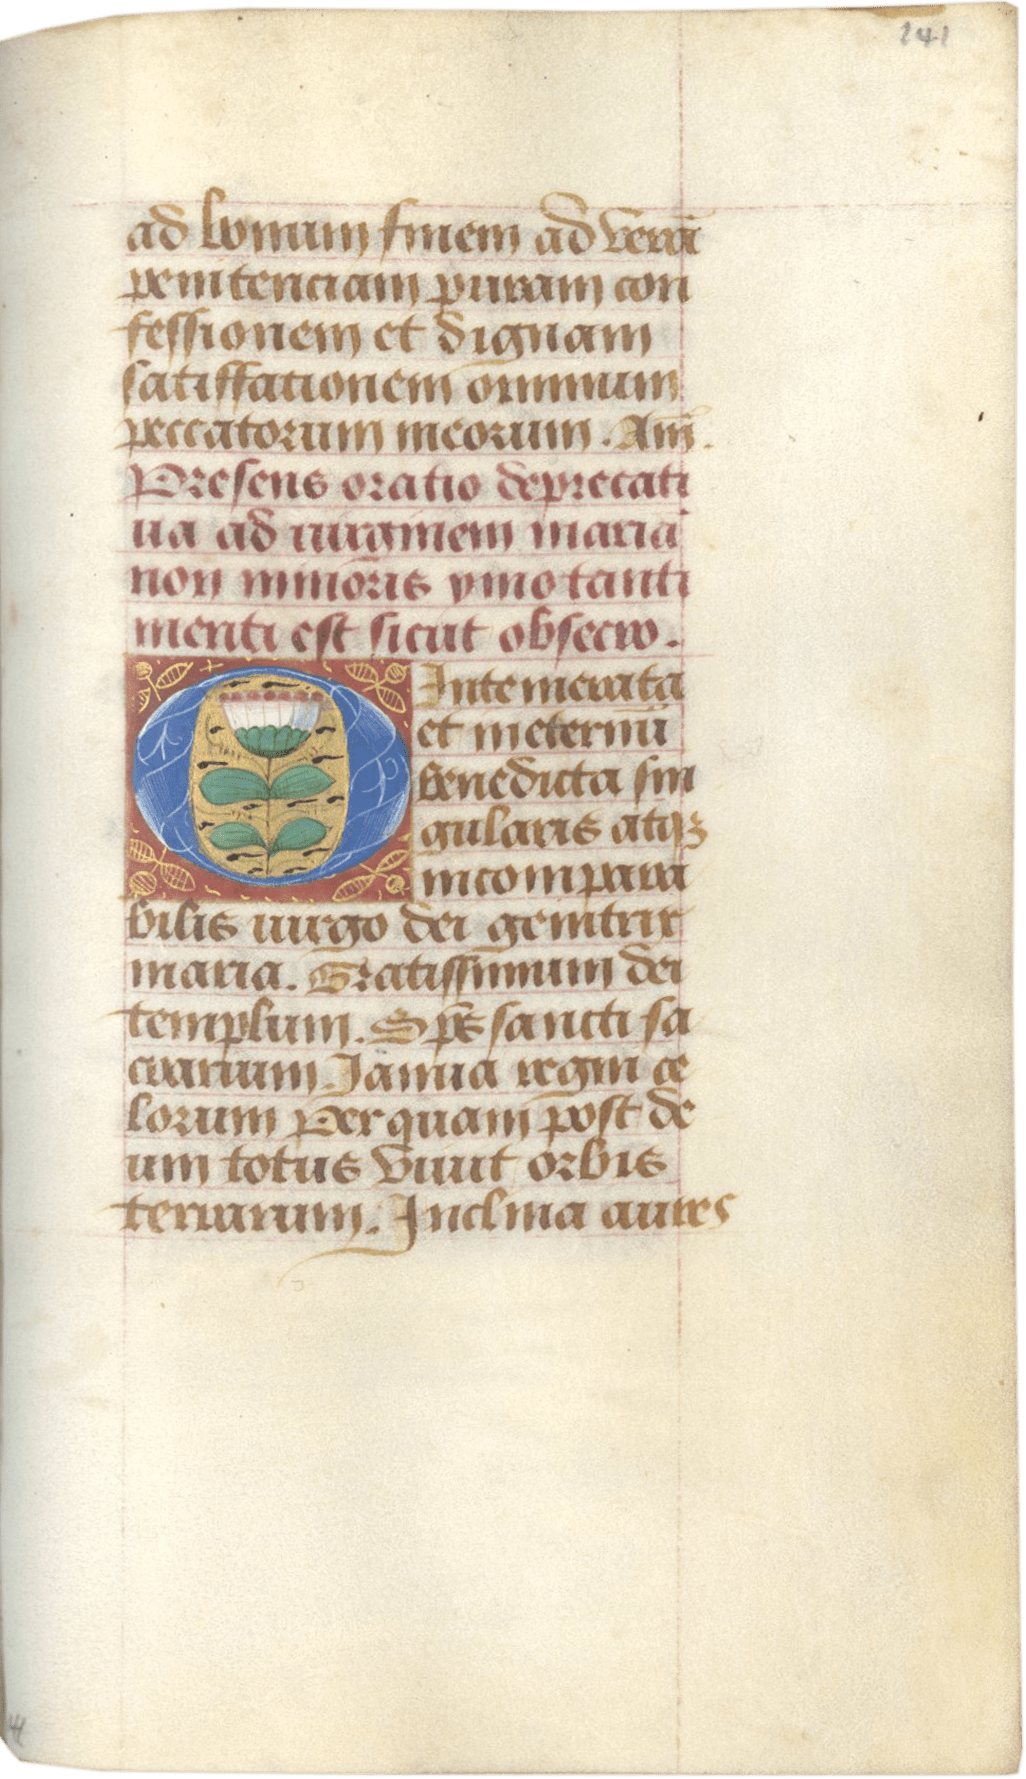 141
ad bonum finem ad verā
penitenciam puram con
fessionem et dignam
satisffationem omnium
peccatorum meorum. Am̄.
Presens oratio deprecati
ua ad uirginem mariā
non minoris ymo tanti
menti est sicut obsecro.
O Intemerata
et ineternū
benedicta sin
gularis atqꝫ
incompara
bilis uirgo dei genitrix
maria. Gratissimum dei
templum. Sp̄s sancti sa
crarium Ianua regni ce
lorum Per quam post de
um totus viuit orbis
terrarum. Inclina aures